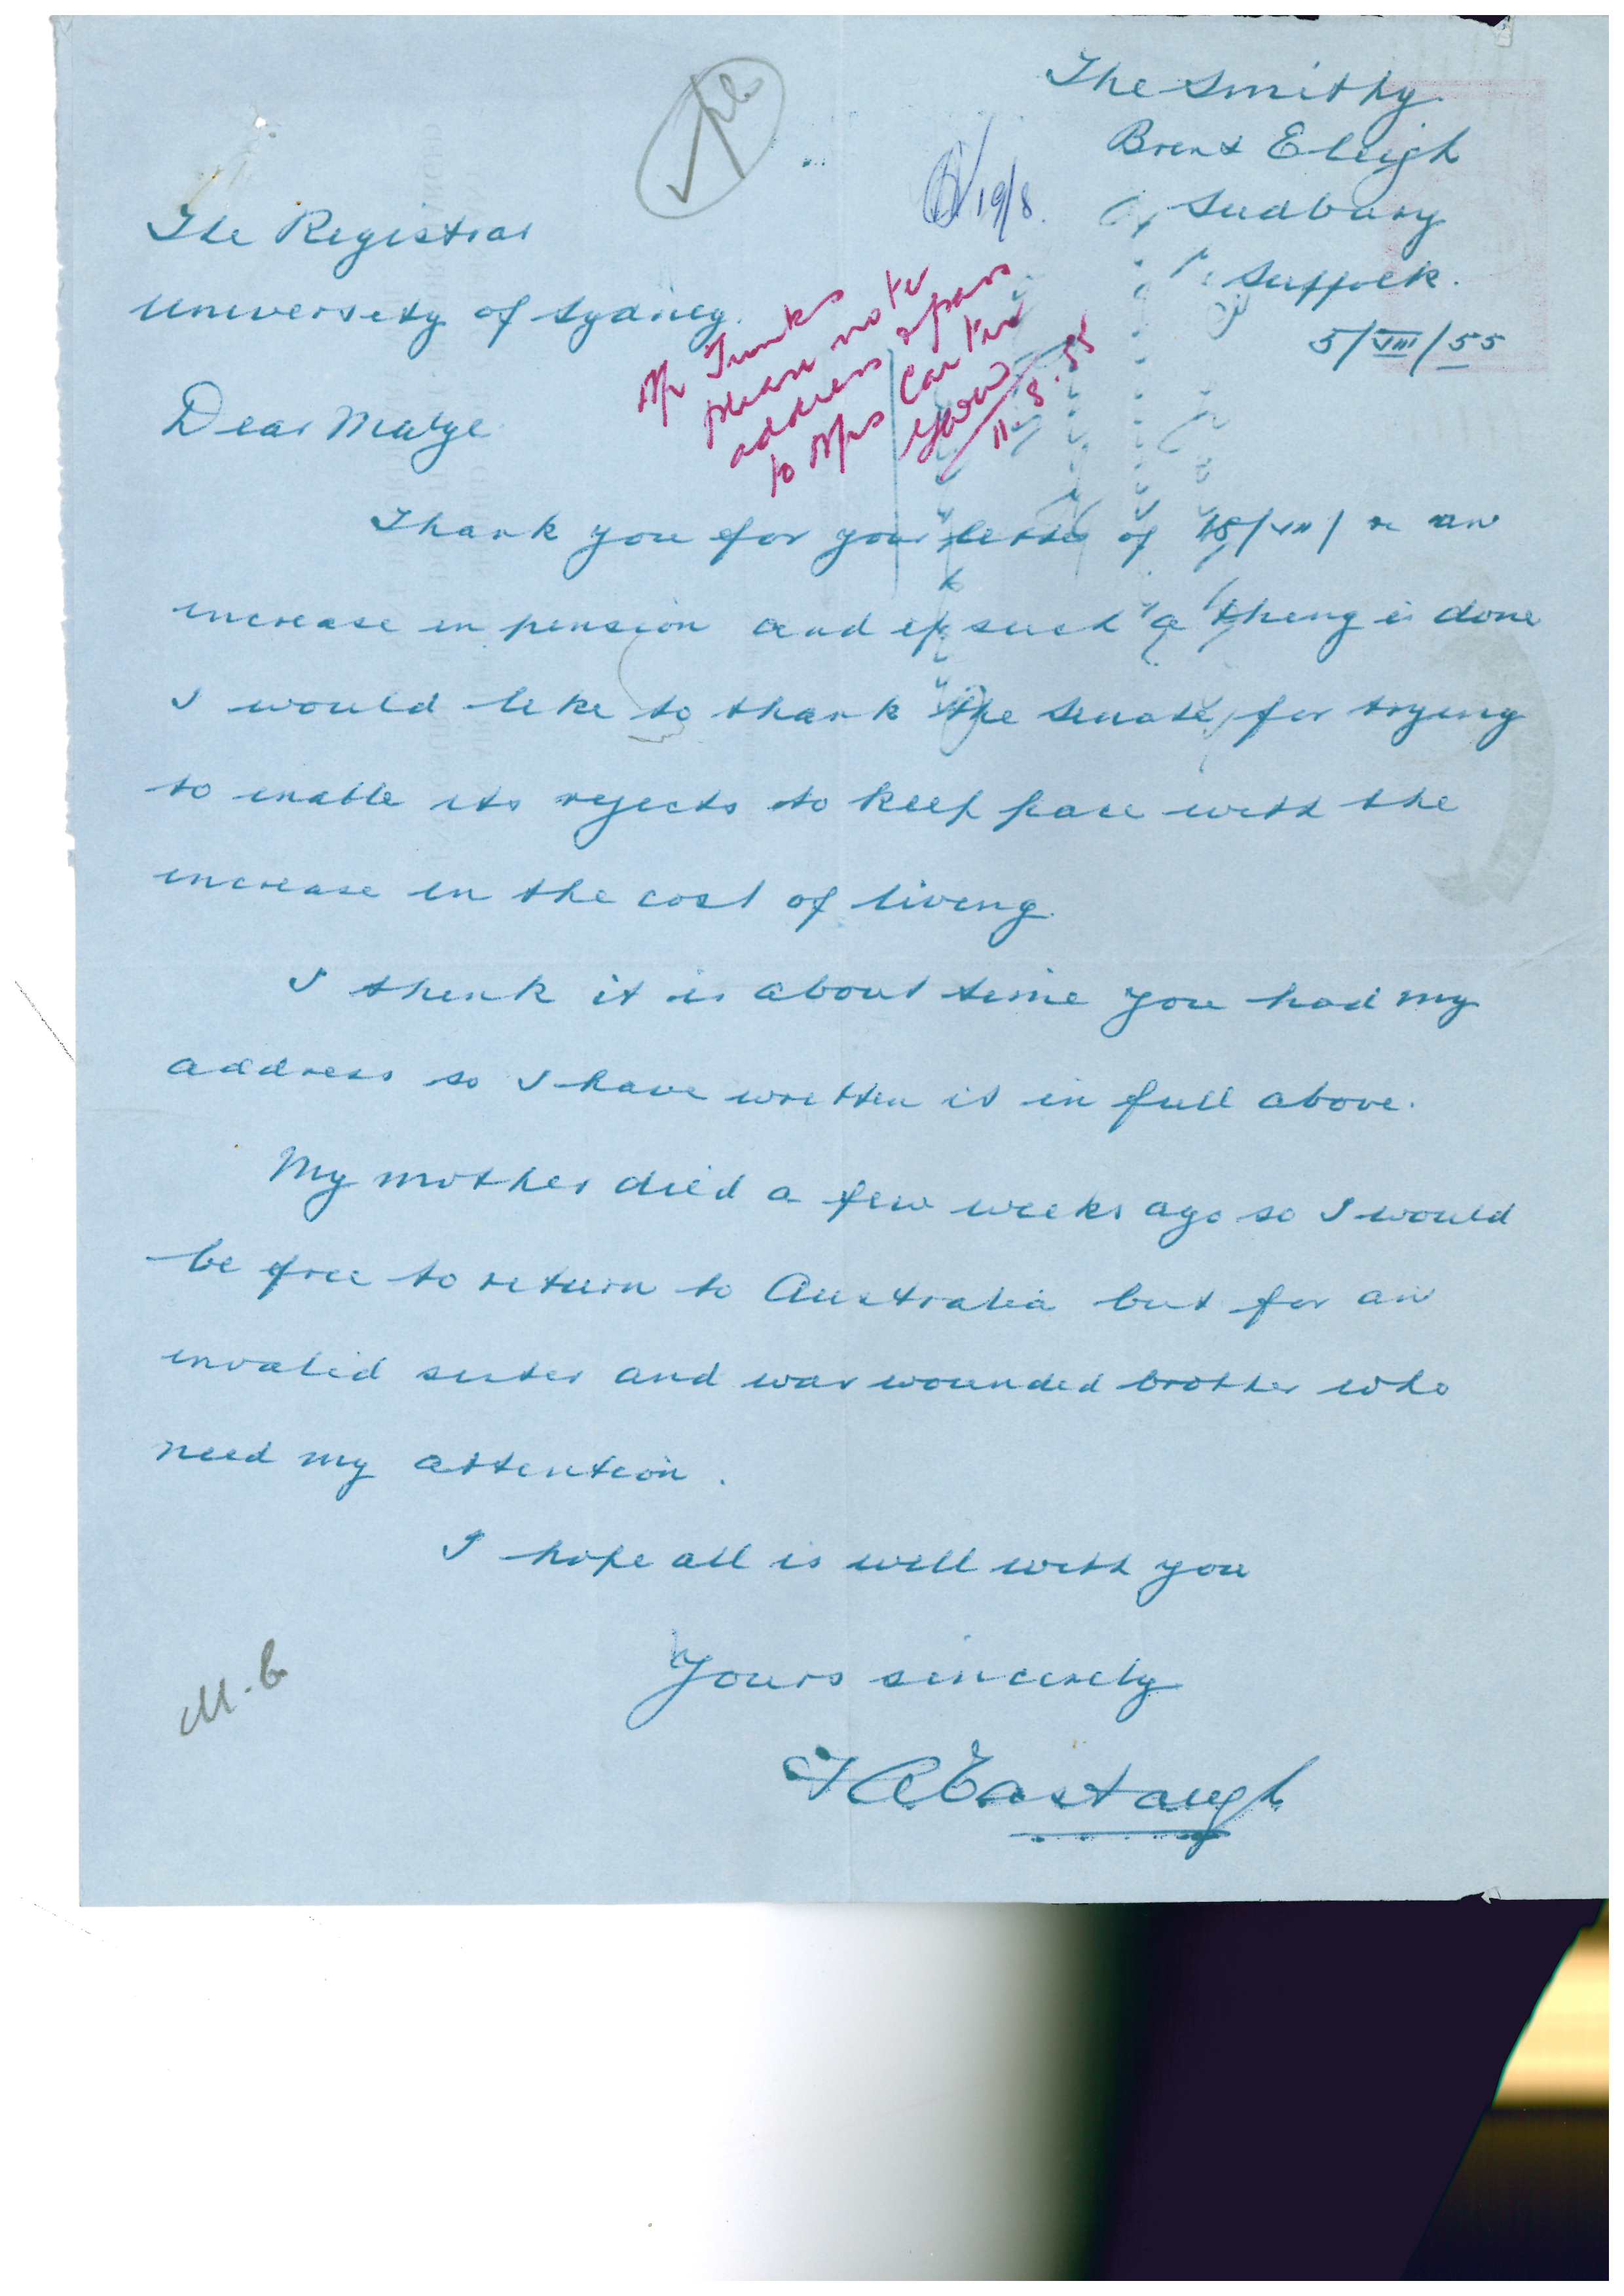 The Smithy
Brent Eleigh
Sudbury
Suffolk.
5/VIII/55
19/8.
The Registrar
University of Sydney.
Mr
please note
address & pass
to Mrs Carter
11.8.55
Dear Maze
Thank you for your letter of 18/VII/ re an
increase in pension and if such a thing is done
I would like to thank the Senate, for trying
to enable its rejects to keep pace with the
increase in the cost of living.
I think it is about time you had my
address so I have written it in full above.
My mother died a few weeks ago so I would
be free to return to Australia but for an
invalid sister and war wounded brother who
need my attention.
I hope all is well with you
Yours sincerely
F A Eastaugh